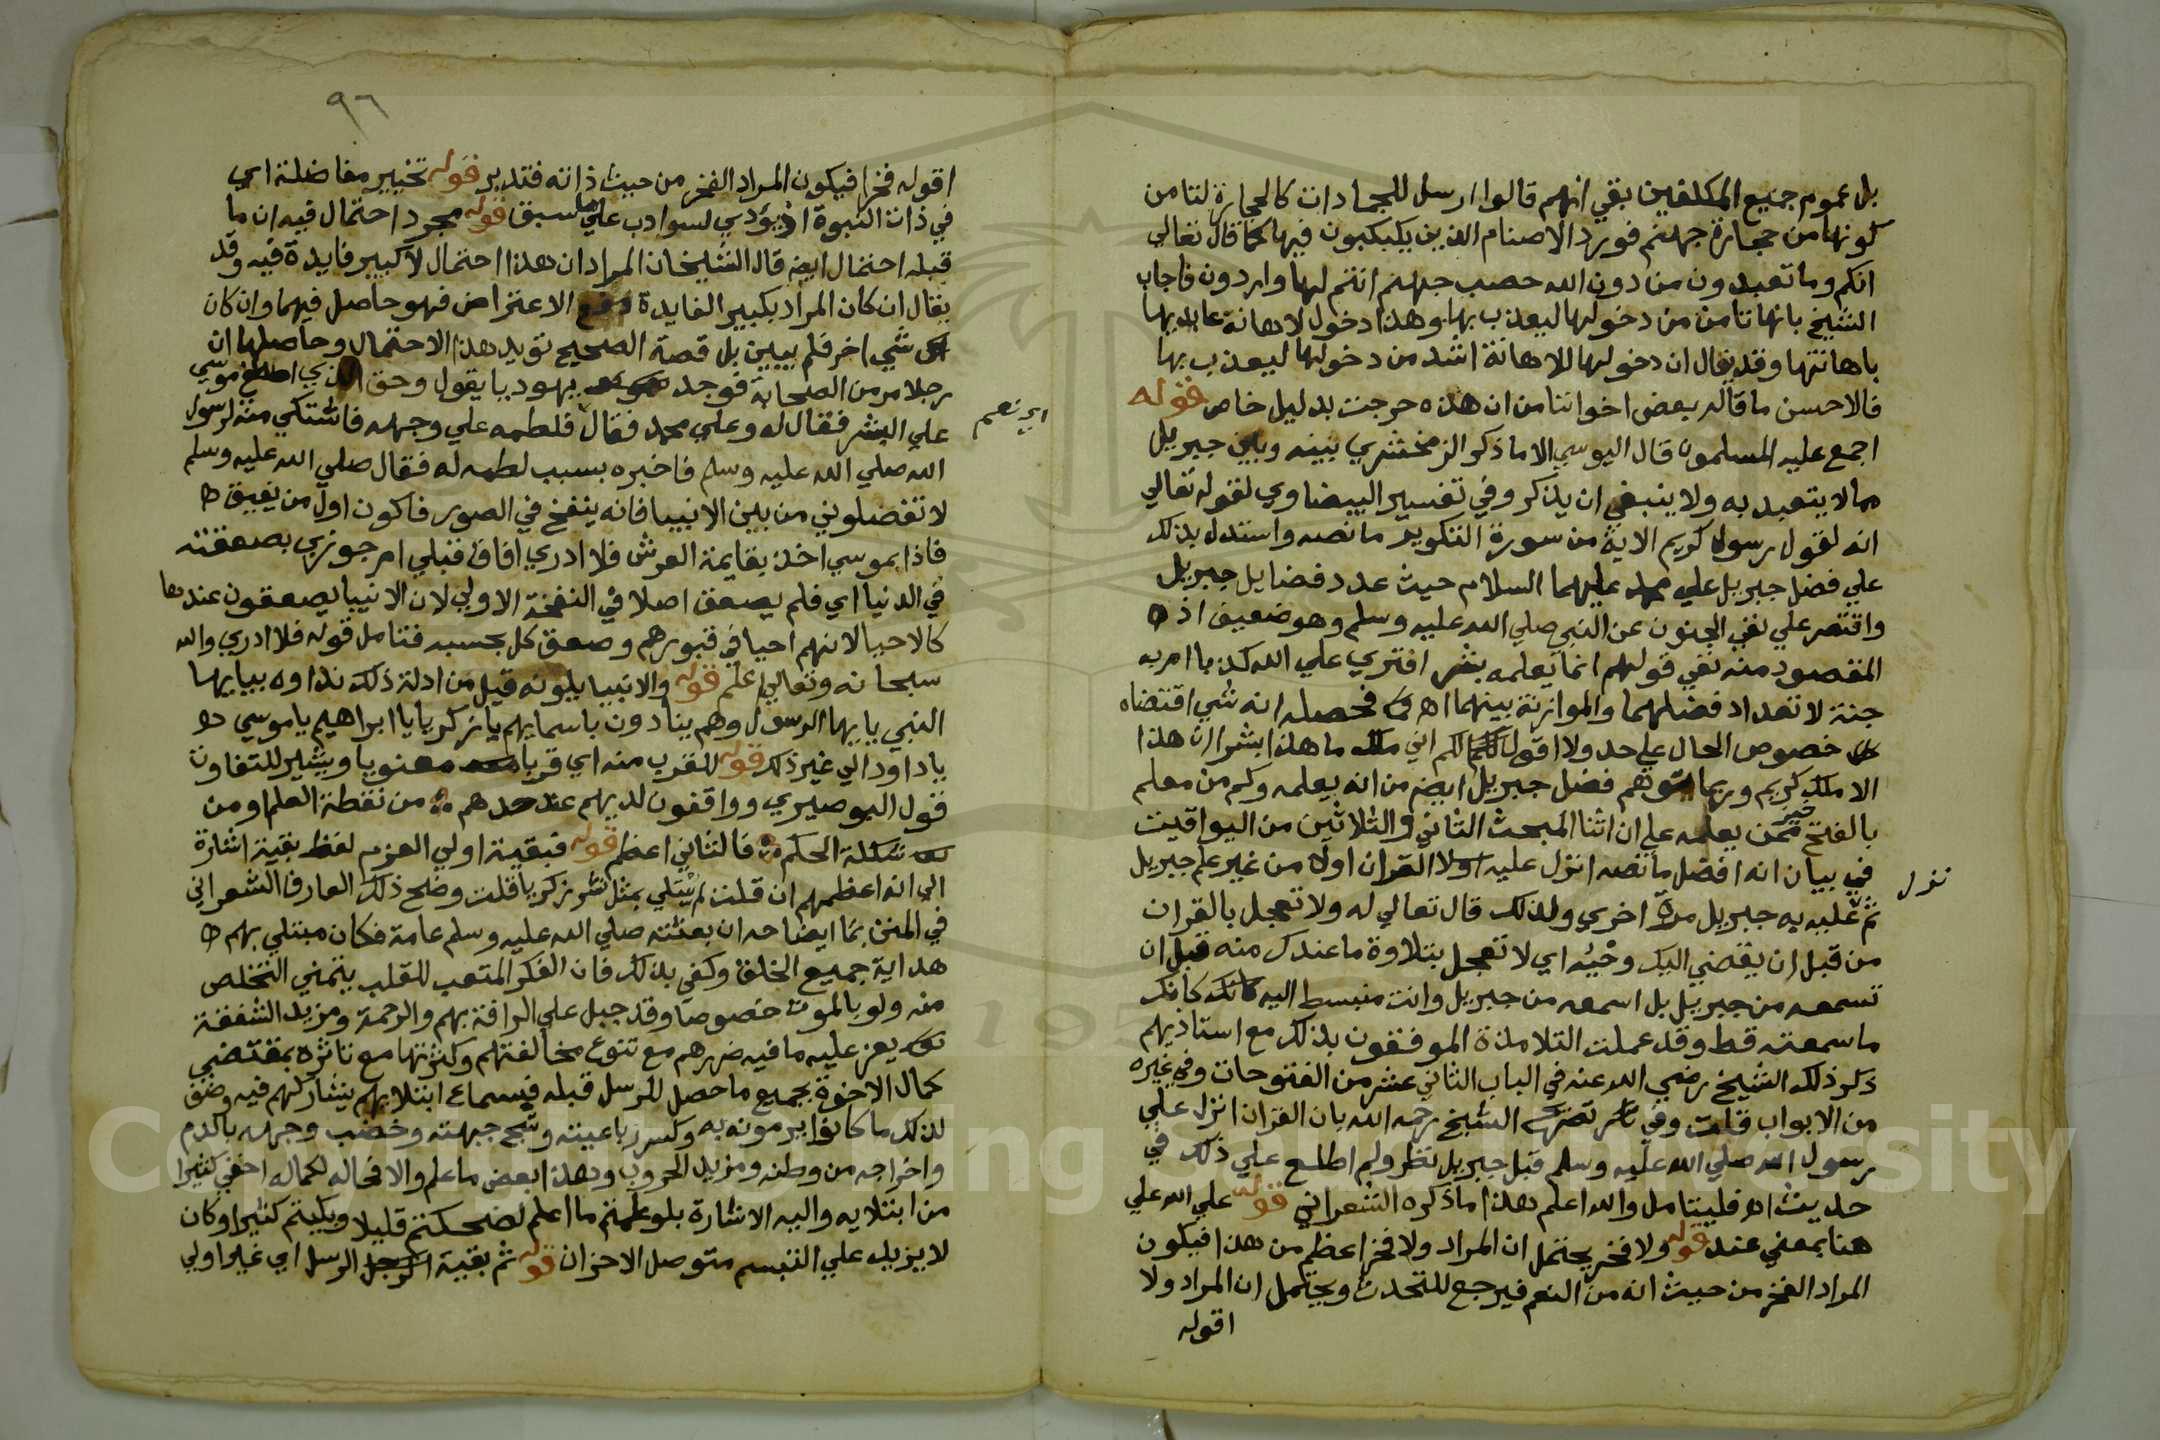 بل عموم جميع المكلفين بقي انهم قالوا ارسل للجمادات كالحجارة لتامن
كونها من حجارة جهنم فورد الاصنام الذين يكبكبون فيها كما قال تعالي
انكم وما تعبدون من دون الله حصب جهنم انتم لها واردون فاجاب
الشيخ بانها تامن من دخولها ليعذب بها وهذا دخول لاهانة عابديها
باهانتها وقد يقال ان دخولها للاهانة اشد من دخولها ليعذب بها
فالاحسن ما قاله بعض اخواننا من ان هذه خرجت بدليل خاص قوله
اجمع عليه المسلمون قال اليوسي الا ما ذكر الزمخشري بينه وبين جبريل
مما لا يتعبد به ولا ينبغي ان يذكر وفي تفسير البيضاوي لقوله تعالي
انه لقول رسول كريم الاية من سورة التكوير ما نصه واستدل بذلك
علي فضل جبريل علي محمد عليهما السلام حيث عدد فضايل جبريل
واقتصر علي نفي الجنون عن النبي صلي الله عليه وسلم وهو ضعيف اذ
المقصود منه نفي قولهم انما يعلمه بشر افتري علي الله كذبا ام به
جنة لا تعداد فضلهما والموازنة بينهما اه فحصله انه شي اقتضاه
خصوص الحال علي حد ولا اقول لكم اني ملك ما هذا بشرا ان هذا
الا ملك كريم وربما توهم فضل جبريل ايضا من انه يعلمه وكم من معلم
بالفتح خير ممن يعلمه علي ان اثنا المبحث الثاني والثلاثين من اليواقيت
في بيان انه افضل ما نصه انزل عليه اولا القران اولا من غير علم جبريل
نزل
ثم عليه به جبريل مرة اخري ولذلك قال تعالي له ولا تعجل بالقران
من قبل ان يقضي اليك وحيه اي لا تعجل بتلاوة ما عندك منه قبل ان
تسمعه من جبريل بل اسمعه من جبريل وانت منبسط اليه كانك
ما سمعته قط وقد عملت التلامذة الموفقون بذلك مع استاذيهم
ذكر ذلك الشيخ رضي الله عنه في الباب الثاني عشر من الفتوحات وفي غيره
من الابواب قلت وفي تصريح الشيخ رحمه الله بان القران انزل علي
رسول الله صلي الله عليه وسلم قبل جبريل نظر ولم اطلع علي ذلك في
حديث اه فليتامل والله اعلم هذا ما ذكره الشعراني قوله علي الله علي
هنا بمعني عند قوله ولا فخر يحتمل ان المراد ولا فخر اعظم من هذا فيكون
المراد الفخر من حيث انه من النعم فيرجع للتحدث ويحتمل ان المراد ولا
اقوله
٩٦
اقوله فخرا فيكون المراد الفخر من حيث ذاته فتدبر قوله تخيير مفاضلة اي
في ذات النبوة اذ يؤدي لسوادب علي ما سبق قوله مجرد احتمال فيه ان ما
قبله احتمال ايضا قال الشيخان المراد ان هذا احتمال لا كبير فايدة فيه وقد
يقال ان كان المراد بكبير الفايدة دفع الاعتراض فهو حاصل فيهما وان كان
شي اخر فلم يبين بل قصة الصحيح تويد هذا الاحتمال وحاصلها ان
رجلا مر من الصحابة فوجد يهوديا يقول وحق الذي اصطفي موسي
علي البشر فقال له وعلي محمد فقال فلطمه علي وجهه فاشتكي منه لرسول
اي نعم
الله صلي الله عليه وسلم فاخبره بسبب لطمه له فقال صلي الله عليه وسلم
لا تفضلوني من بين الانبيا فانه ينفخ في الصور فاكون اول من يفيق
فاذا بموسي اخذ بقايمة العرش فلا ادري افاق قبلي ام جوزي بصعقته
في الدنيا اي فلم يصعق اصلا في النفخة الاولي لان الانبيا يصعقون عندها
كالاحيا لانهم احيا في قبورهم وصعق كل بحسبه فتامل قوله فلا ادري والله
سبحانه وتعالي اعلم قوله والانبيا يلونه قيل من ادلة ذلك نداوه بيا ايها
النبي يا ايها الرسول وهم ينادون باسمايهم يا زكريا يا ابراهيم يا موسي
يا داود الي غير ذلك قوله للقرب منه اي قربا معنويا ويشير للتفاوت
قول البوصيري وواقفون لديهم عند حدهم من نقطة العلم او من
شكلة الحكم فالثاني اعظم قوله فبقية اولي العزم لفظ بقية اشارة
الي انه اعظمهم ان قلت لم يبتلي بمثل نشر زكريا قلت وضح ذلك العارف الشعراني
في المنن بما ايضاحه ان بعثته صلي الله عليه وسلم عامة فكان مبتلي بهم
هداية جميع الخلق وكفي بذلك فان الفكر المتعب للقلب يتمني التخلص
منه ولو بالموت خصوصا وقد جبل علي الرافة بهم والرحمة ومزيد الشفقة
يعز عليه ما فيه ضررهم مع تنوع مخالفتهم وكثرتها مع تاثره بمقتضي
كمال الاخوة بجميع ما حصل للرسل قبله فبسماع ابتلايهم يشاركهم فيه وضف
لذلك ما كانوا يرمونه به وكسر رباعيته وشج جبهته وخضب وجهه بالدم
واخراجه من وطنه ومزيد الحروب وهذا بعض ما علم والا فحاله لكماله اخفي كثيرا
من ابتلايه واليه الاشارة بلو علمتم ما اعلم لضحكتم قليلا وبكيتم كثيرا وكان
لا يزيد علي التبسم متوصل الاحزان قوله ثم بقية الرسل اي غير اولي